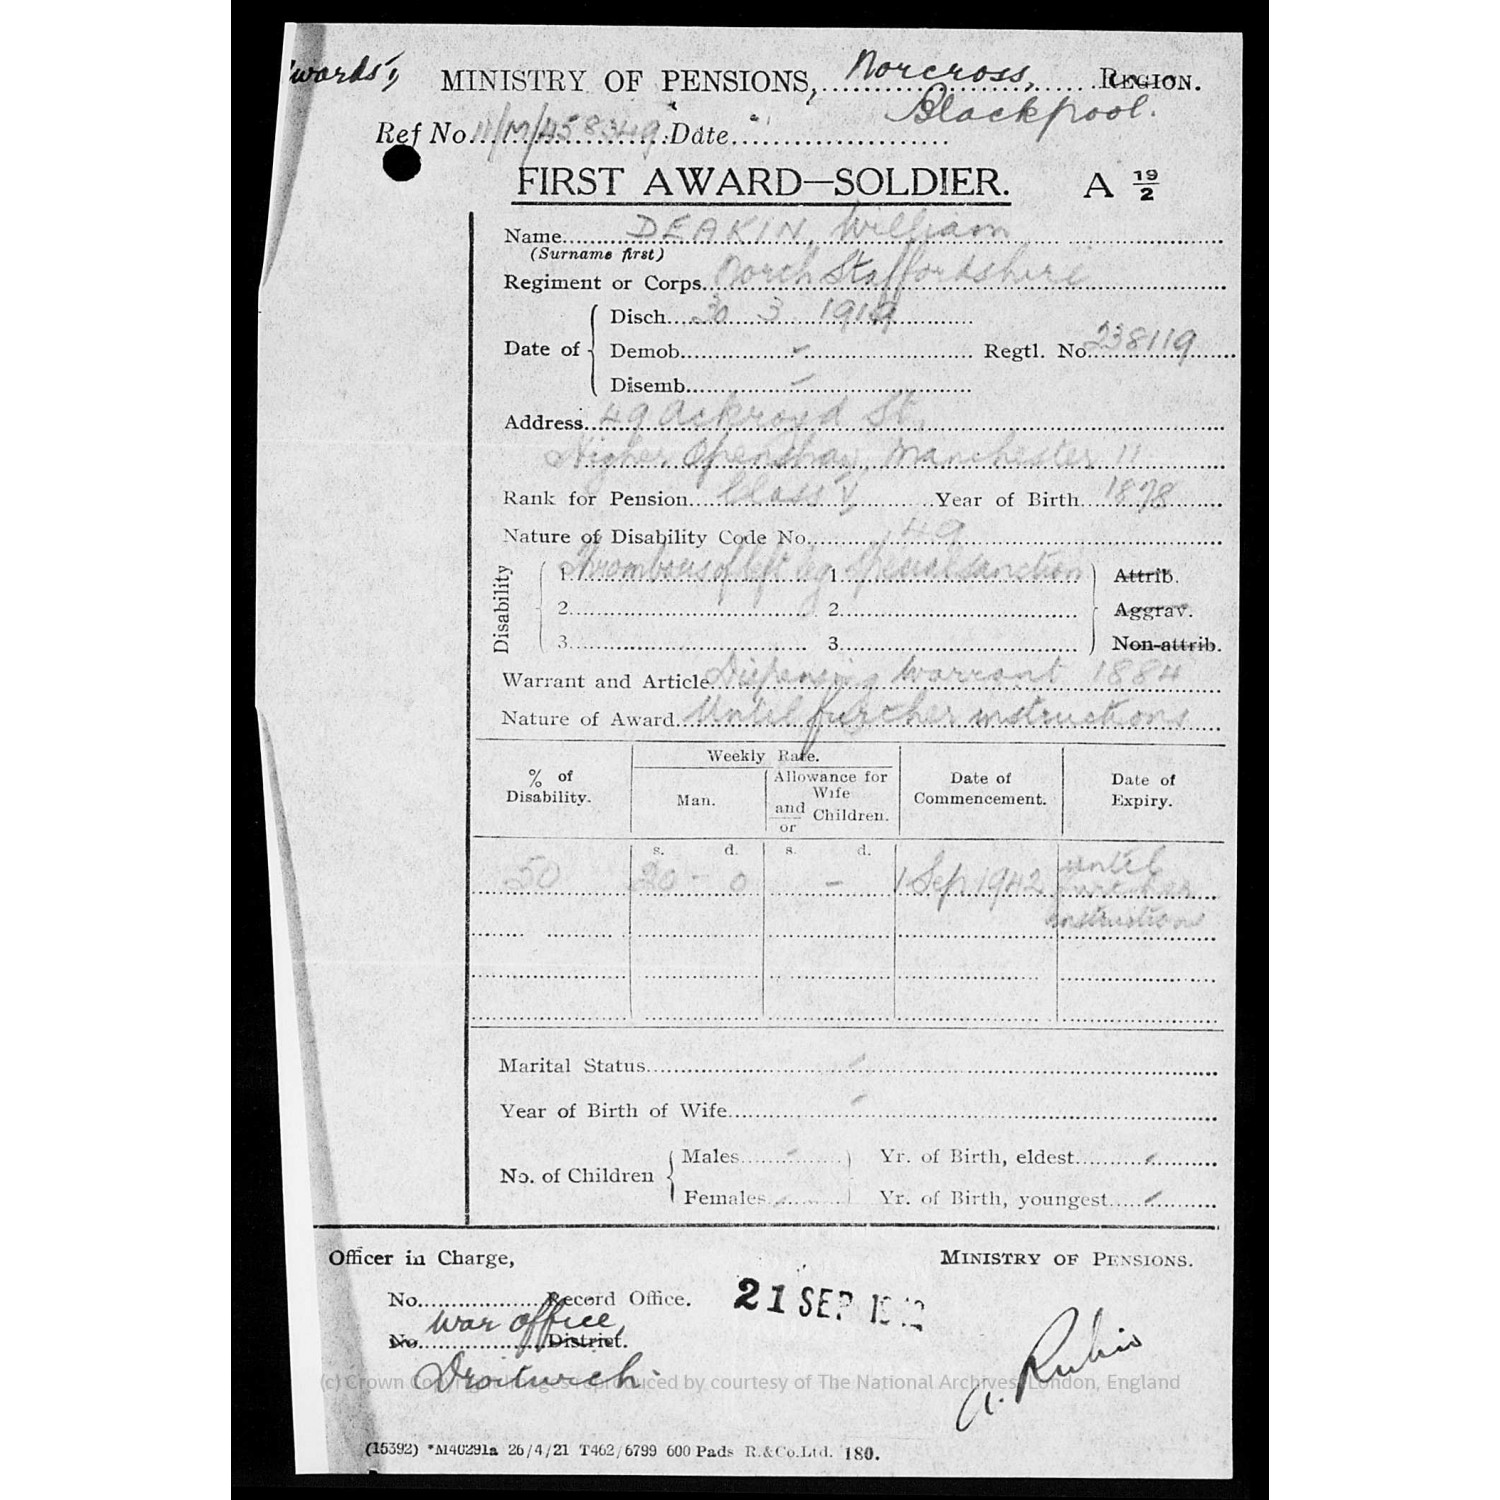 wards,
MINISTRY OF PENSIONS, Norcross, REGION.
Blackpool.
Ref No. 11/M/458349 Date
FIRST AWARD—SOLDIER. A 19/2
Name DEAKIN, William
(Surname first)
Regiment or Corps North Staffordshire
Disch. 30 3 1919
Date of Demob. - Regtl. No. 238119
Disemb. -
Address 49 Ackroyd St.
Higher Openshaw, Manchester 11
Rank for Pension Class V Year of Birth 1878
Nature of Disability Code No. 49
Disability 1. Thrombosis of left leg 1. Special sanction Attrib.
2. 2. Aggrav.
3. 3. Non-attrib.
Warrant and Article Dispensing Warrant 1884
Nature of Award Until further instructions
Weekly Rate.
% of Disability. Man. Allowance for Wife and/or Children. Date of Commencement. Date of Expiry.
s. d. s. d.
50 20 - 0 - 1 Sep 1942 until
further
instructions
Marital Status -
Year of Birth of Wife -
No. of Children Males - Yr. of Birth, eldest -
Females - Yr. of Birth, youngest -
Officer in Charge, MINISTRY OF PENSIONS.
No. Record Office. 21 SEP 1942
War Office,
No. District.
Droitwich. A. Rubio
(c) Crown Copyright Images reproduced by courtesy of The National Archives, London, England
(15392) *M40291a 26/4/21 T462/6799 600 Pads R.&Co.Ltd. 180.